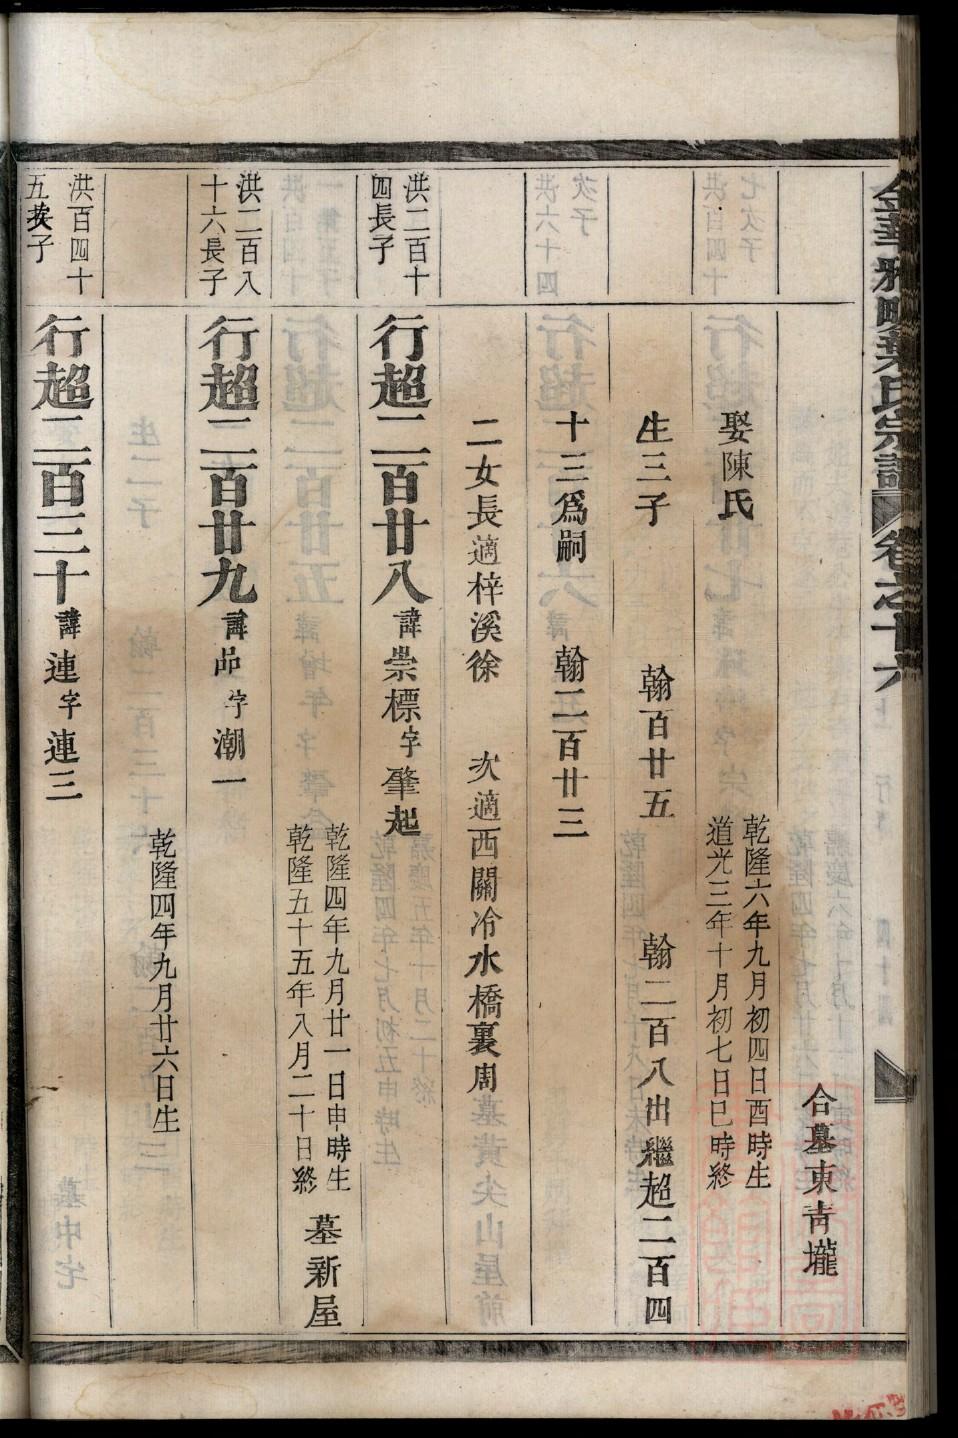 合墓東青壠
娶陳氏
乾隆六年九月初四日酉時生
道光三年十月初七日巳時終
生三子 翰百廿五 翰二百八出繼超二百四
十三爲嗣 翰二百廿三
二女長適梓溪徐 次適西關冷水橋裏周
洪二百十
四長子
行超二百廿八 諱崇標字肇起
乾隆四年九月廿一日申時生
乾隆五十五年八月二十日終
墓新屋
洪二百八
十六長子
行超二百廿九 諱 字潮一
乾隆四年九月廿六日生
洪百四十
五 子
行超二百三十 諱連字連三